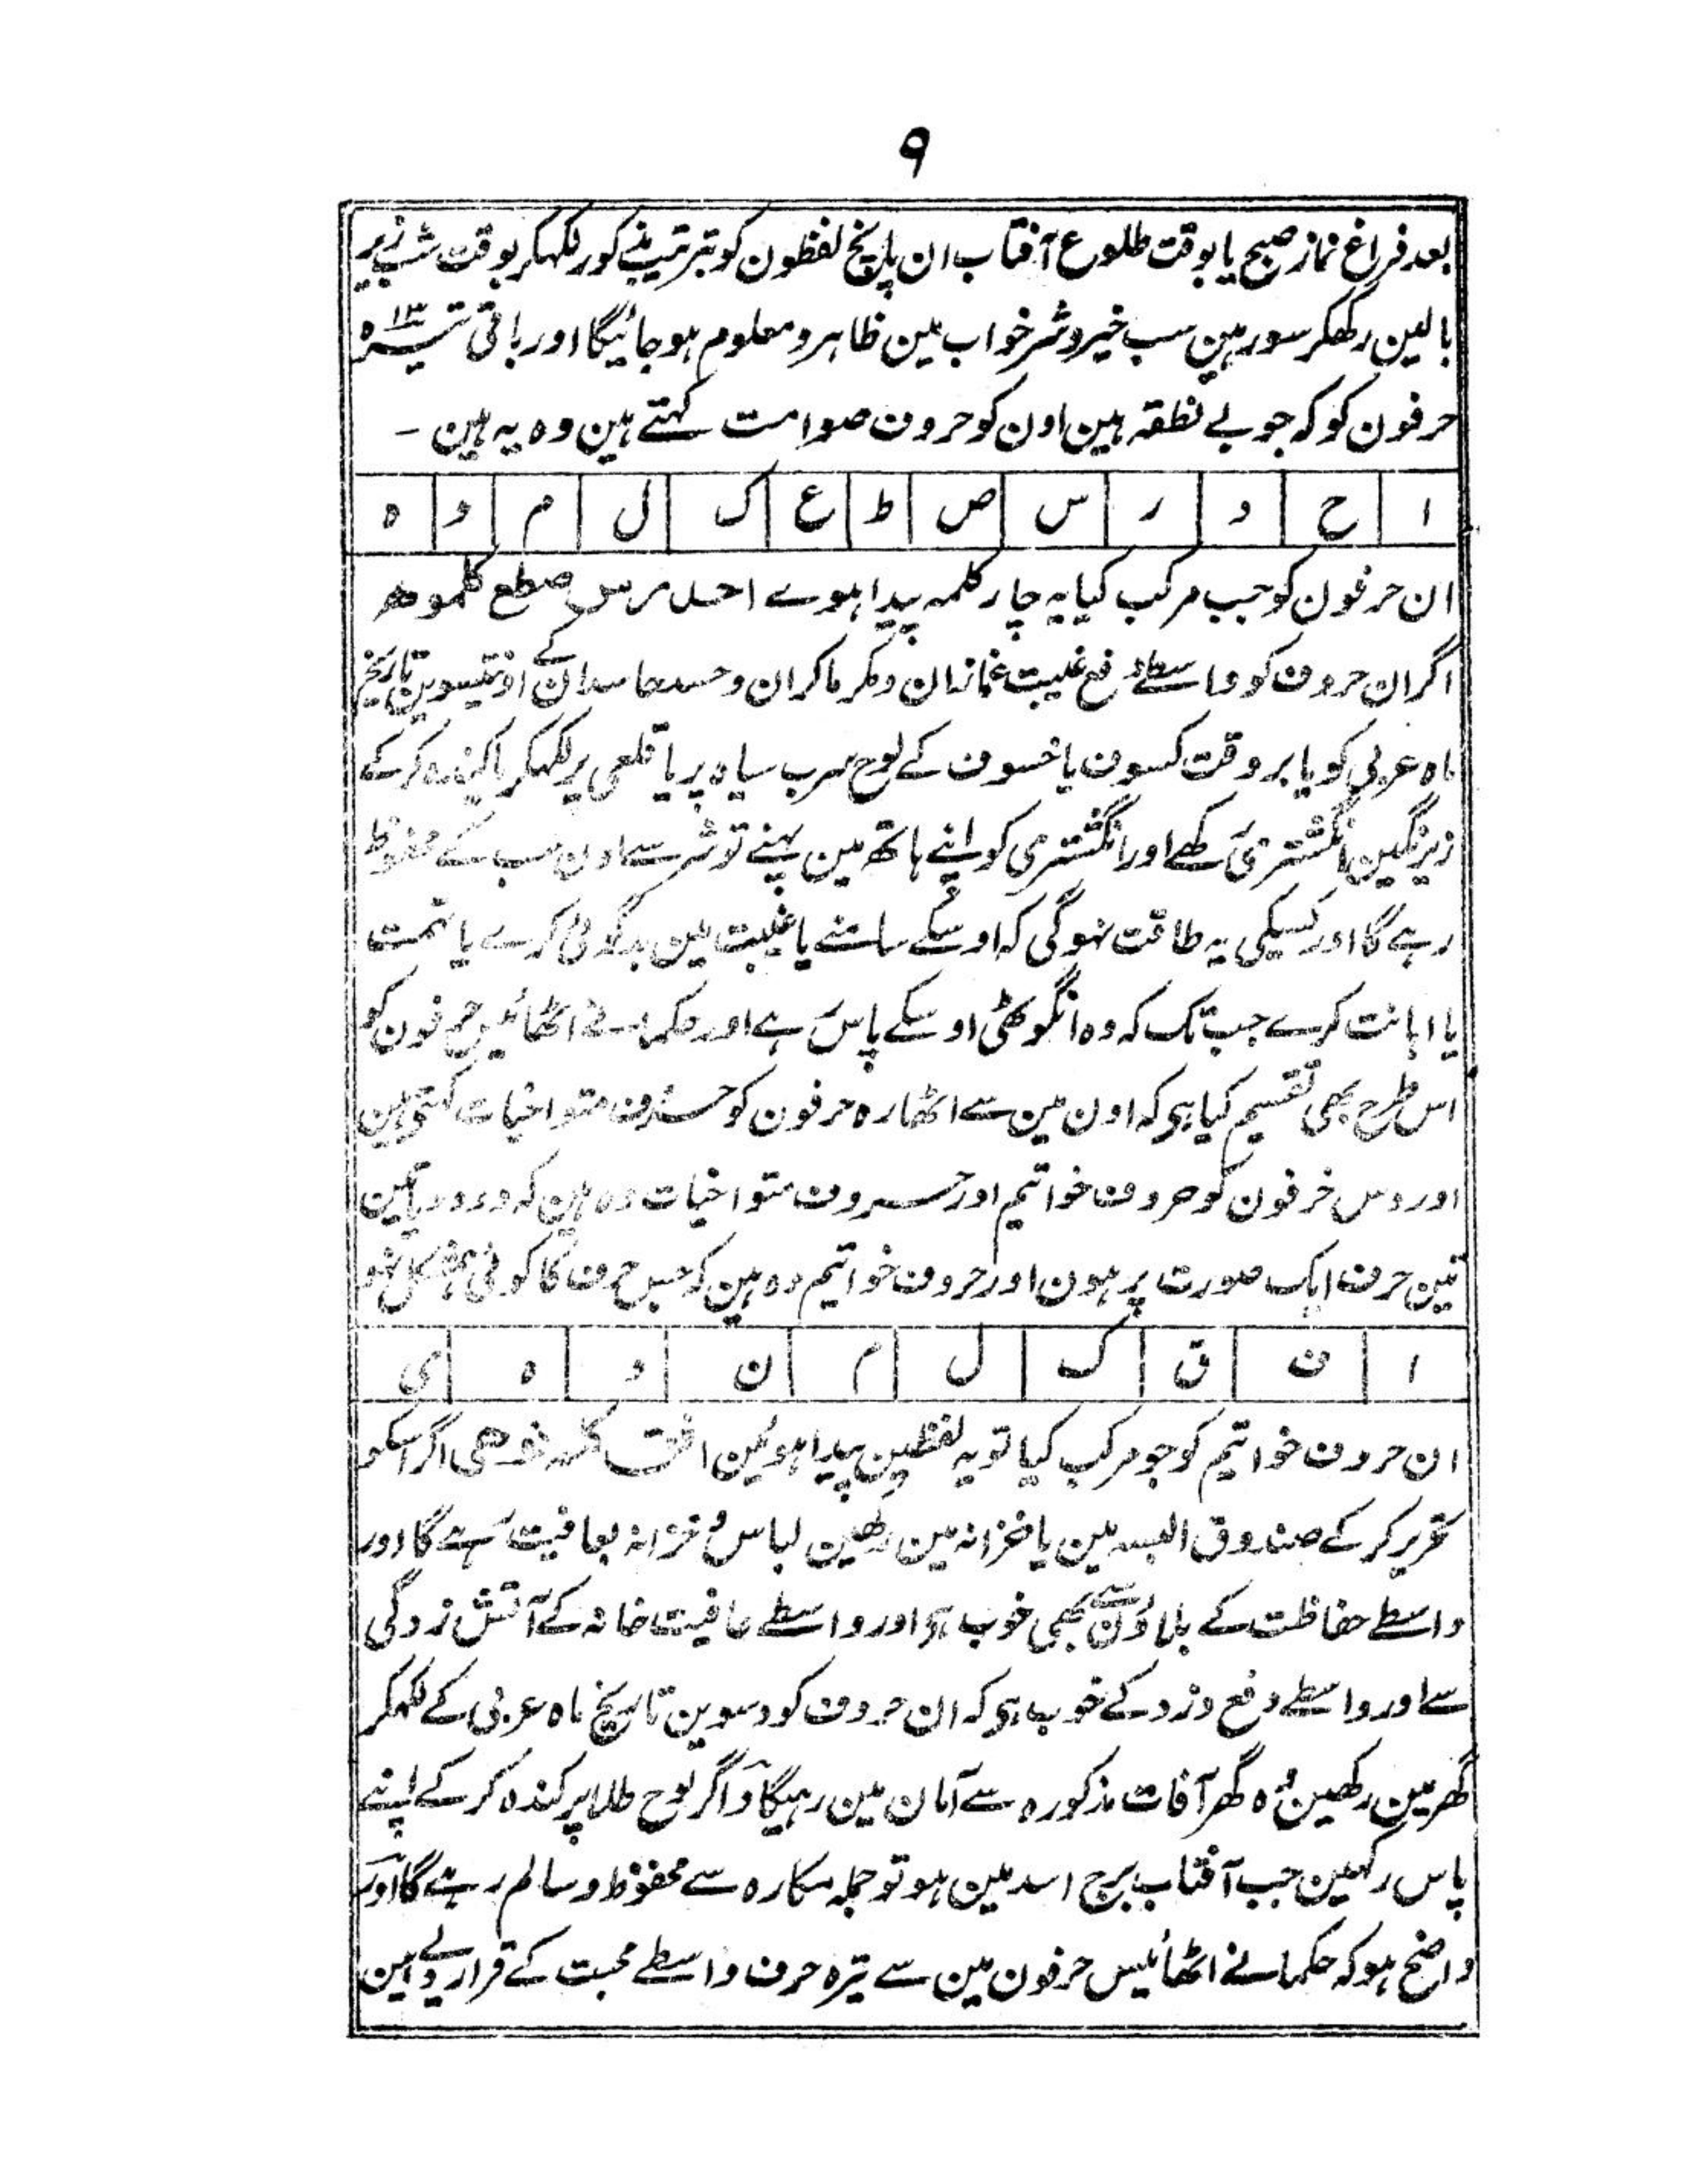 ۹
بعد فراغ نماز صبح یا بوقت طلوع آفتاب ان پانچ لفظون کو بترتیب مذکور لکهکر بوقت شب زیر
بالین رکھکر سو رہین سب خیر و شر خواب مین ظاہر و معلوم ہو جائیگا اور باقی تیرہ ۱۳
حرفون کو کہ جو بے نطقہ ہین اون کو حروف صوامت کہتے ہین وہ یہ ہین ۔
ا ح د ر س ص ط ع ک ل م و ہ
ان حرفون کو جب مرکب کیا یہ چار کلمہ پیدا ہوے احد رس صطع کلموہ
اگر ان حروف کو واسطے دفع غیبت غمازان و مکر ماکران و حسد حاسدان کے اونتیسوین تاریخ
ماہ عربی کو یا بر وقت کسوف یا خسوف کے لوح سرب سیاہ پر یا قلعی پر لکهکر یا کندہ کرکے
زیر نگین انگشتری رکھے اور انگشتری کو اپنے ہاتھ مین پہنے تو شر سے اون سب کے محفوظ
رہے گا اور کسیکی یہ طاقت نہوگی کہ اوسکے سامنے یا غیبت مین بدگوئی کرے یا تہمت
یا اہانت کرے جب تک کہ وہ انگوٹھی اوسکے پاس رہے اور حکما نے اٹھائیس حرفون کو
اس طرح بھی تقسیم کیا ہی کہ اون مین سے اٹھارہ حرفون کو حروف متواخیات کہتی ہین
اور دس حرفون کو حروف خواتیم اور حروف متواخیات وہ ہین کہ دو دو یا تین
تین حرف ایک صورت پر ہون اور حروف خواتیم وہ ہین کہ جس حرف کا کوئی ہمشکل نہو
ا ف ق ک ل م ن و ہ ی
ان حروف خواتیم کو جو مرکب کیا تو یہ لفظین پیدا ہوئین افق کلمن وهی اگر اسکو
تحریر کر کے صندوق البسہ مین یا خزانہ مین رکھین لباس و خزانہ بعافیت رہے گا اور
واسطے حفاظت کے بلاؤن سے بھی خوب ہی اور واسطے عافیت خانہ کے آتش زدگی
سے اور واسطے دفع دزد کے خوب ہی کہ ان حروف کو دسوین تاریخ ماہ عربی کے لکهکر
گھر مین رکھین وہ گھر آفات مذکورہ سے امان مین رہیگا و اگر لوح طلا پر کندہ کر کے اپنے
پاس رکہین جب آفتاب برج اسد مین ہو تو جملہ مکارہ سے محفوظ و سالم رہے گا اور
واضح ہو کہ حکما نے اٹھائیس حرفون مین سے تیرہ حرف واسطے محبت کے قرار دیے ہین